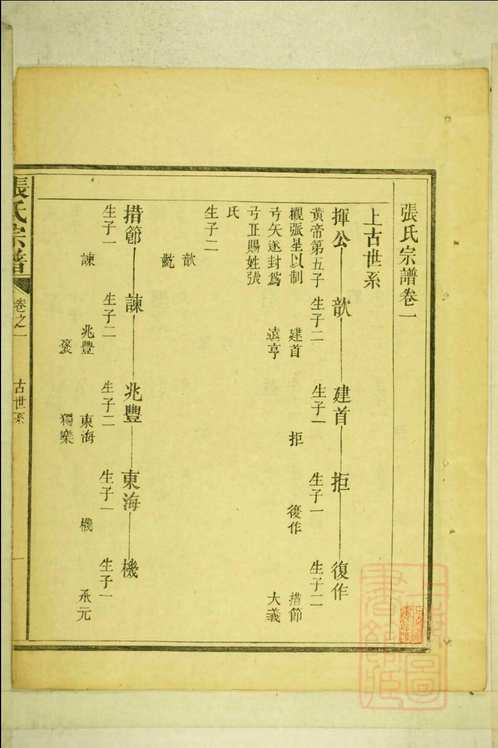 張氏宗譜卷一
上古世系
揮公 歆 建首 拒 復作
黃帝第五子 生子二 生子一 生子一 生子二
觀張星以制 建首 拒 復作 措節
弓矢遂封為 遠亨 大義
弓正賜姓張
氏
生子二
歆
措節 諫 兆豐 東海 機
生子一 生子二 生子二 生子一 生子一
諫 兆豐 東海 機 承元
獨樂
張氏宗譜 卷之一 古世系